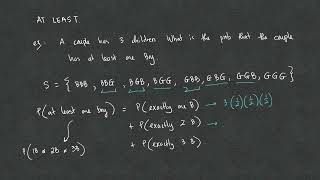 AT LEAST.
eg. A couple has 3 children. What is the prob that the couple
has at least one Boy.
S = { BBB, BBG, BGB, BGG, GBB, GBG, GGB, GGG }
P(at least one boy) = P(exactly one B) → 3(1/2)(1/2)(1/2)
+ P(exactly 2 B) →
P(1B or 2B or 3B) + P(exactly 3 B)